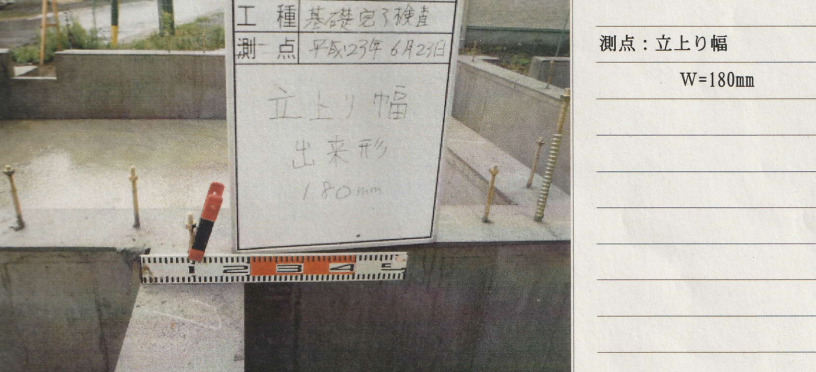 工種 基礎完了検査
測点 平成23年6月23日
立上り幅
出来形
180mm
1 2 3 4 5
測点:立上り幅
W=180mm